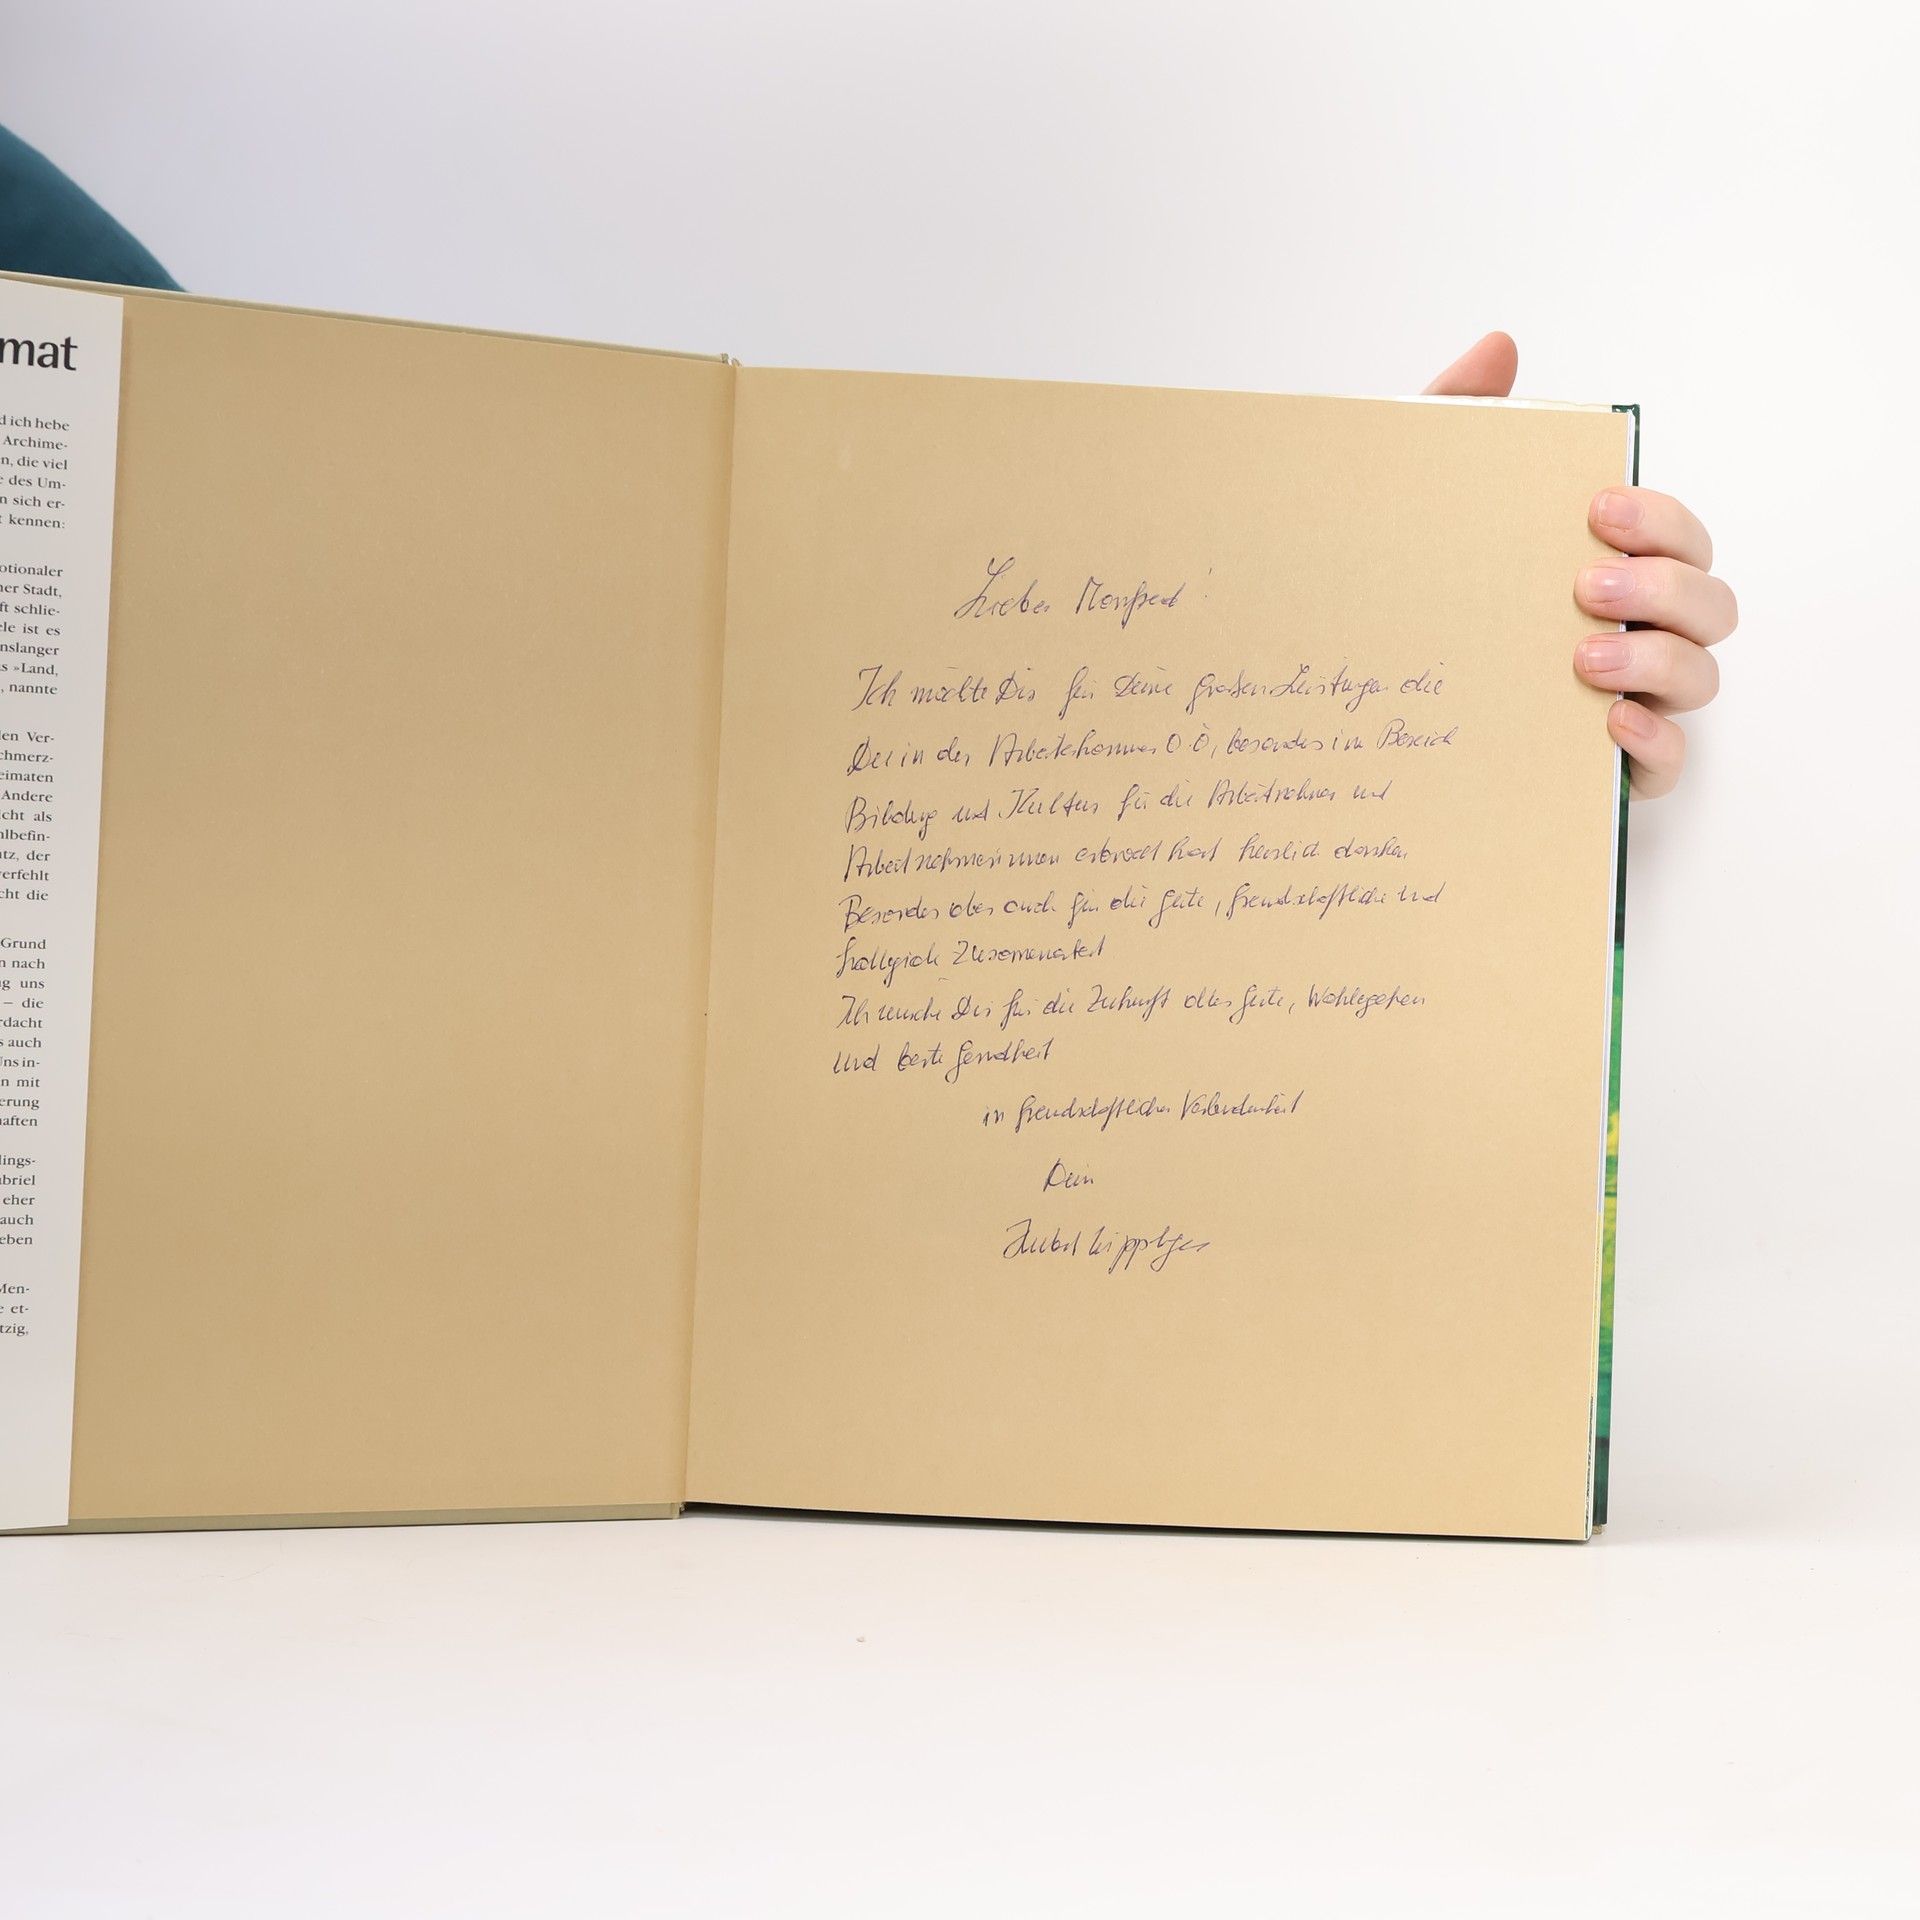 mat
d ich hebe
Archime-
n, die viel
e des Um-
n sich er-
t kennen:
otionaler
ner Stadt,
ft schlie-
ele ist es
nslanger
s »Land,
, nannte
len Ver-
chmerz-
eimaten
Andere
cht als
hlbefin-
tz, der
verfehlt
cht die
Grund
n nach
g uns
– die
rdacht
s auch
Uns in-
n mit
erung
haften
lings-
briel
eher
auch
eben
Men-
e et-
tzig,
Lieber Manfred!
Ich möchte Dir für Deine großen Leistungen die
Du in der Arbeiterkammer OÖ, besonders im Bereich
Bildung und Kultur für die Arbeitnehmer und
Arbeitnehmerinnen erbracht hast herzlich danken
Besonders aber auch für die gute, freundschaftliche und
Zusammenarbeit
Ich wünsche Dir für die Zukunft alles Gute, Wohlergehen
und beste Gesundheit
in freundschaftlicher Verbundenheit
Dein